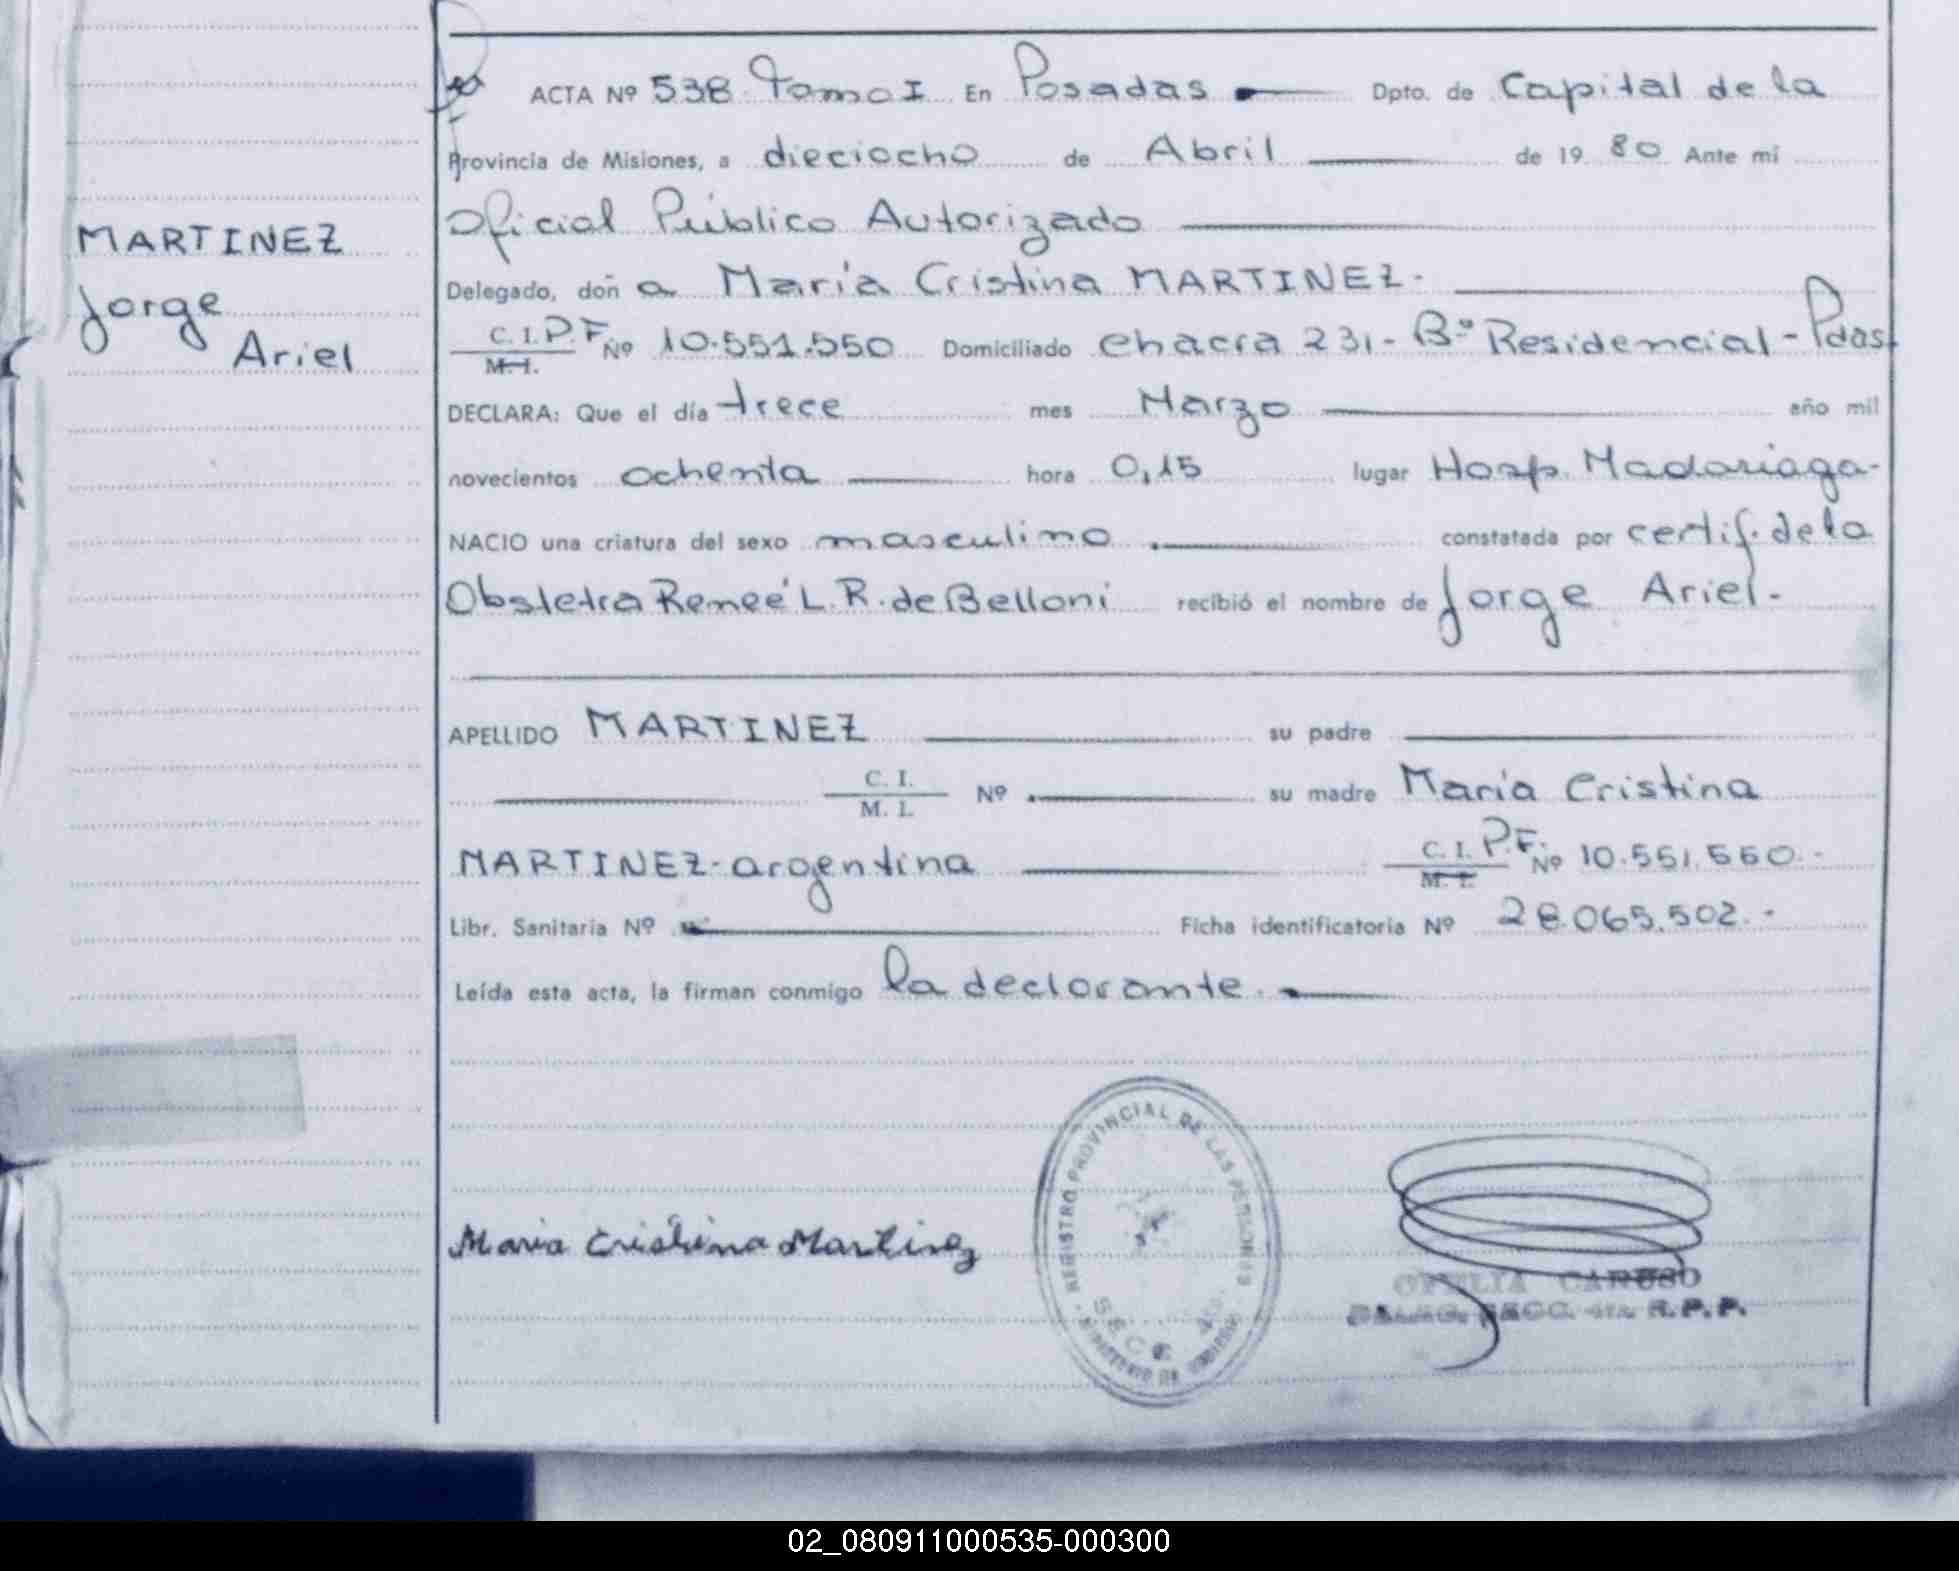 ACTA Nº 538 Tomo I En Posadas Dpto. de Capital de la
Provincia de Misiones, a dieciocho de Abril de 19 80 Ante mi
Oficial Público Autorizado
MARTINEZ
Jorge
Ariel
Delegado, doñ a María Cristina MARTINEZ.
C. I. P. F. Nº 10.551.550 Domiciliado chacra 231 - Bº Residencial - Pdas.
M. I.
DECLARA: Que el día trece mes Marzo año mil
novecientos ochenta hora 0,15 lugar Hosp. Madariaga-
NACIO una criatura del sexo masculino constatada por certif. de la
Obstetra Reneé L. R. de Belloni recibió el nombre de Jorge Ariel.
APELLIDO MARTINEZ su padre
C. I.
M. I. Nº su madre María Cristina
MARTINEZ - argentina C. I. P. F. Nº 10.551.550.-
M. I.
Libr. Sanitaria Nº Ficha identificatoria Nº 28.065.502.-
Leída esta acta, la firman conmigo la declarante.
Maria Cristina Martinez
REGISTRO PROVINCIAL DE LAS PERSONAS
MINISTERIO DE GOBIERNO
SECC. 4ta.
OFELIA CARUSO
DELEG. SECC. 4ta. R.P.P.
02_080911000535-000300